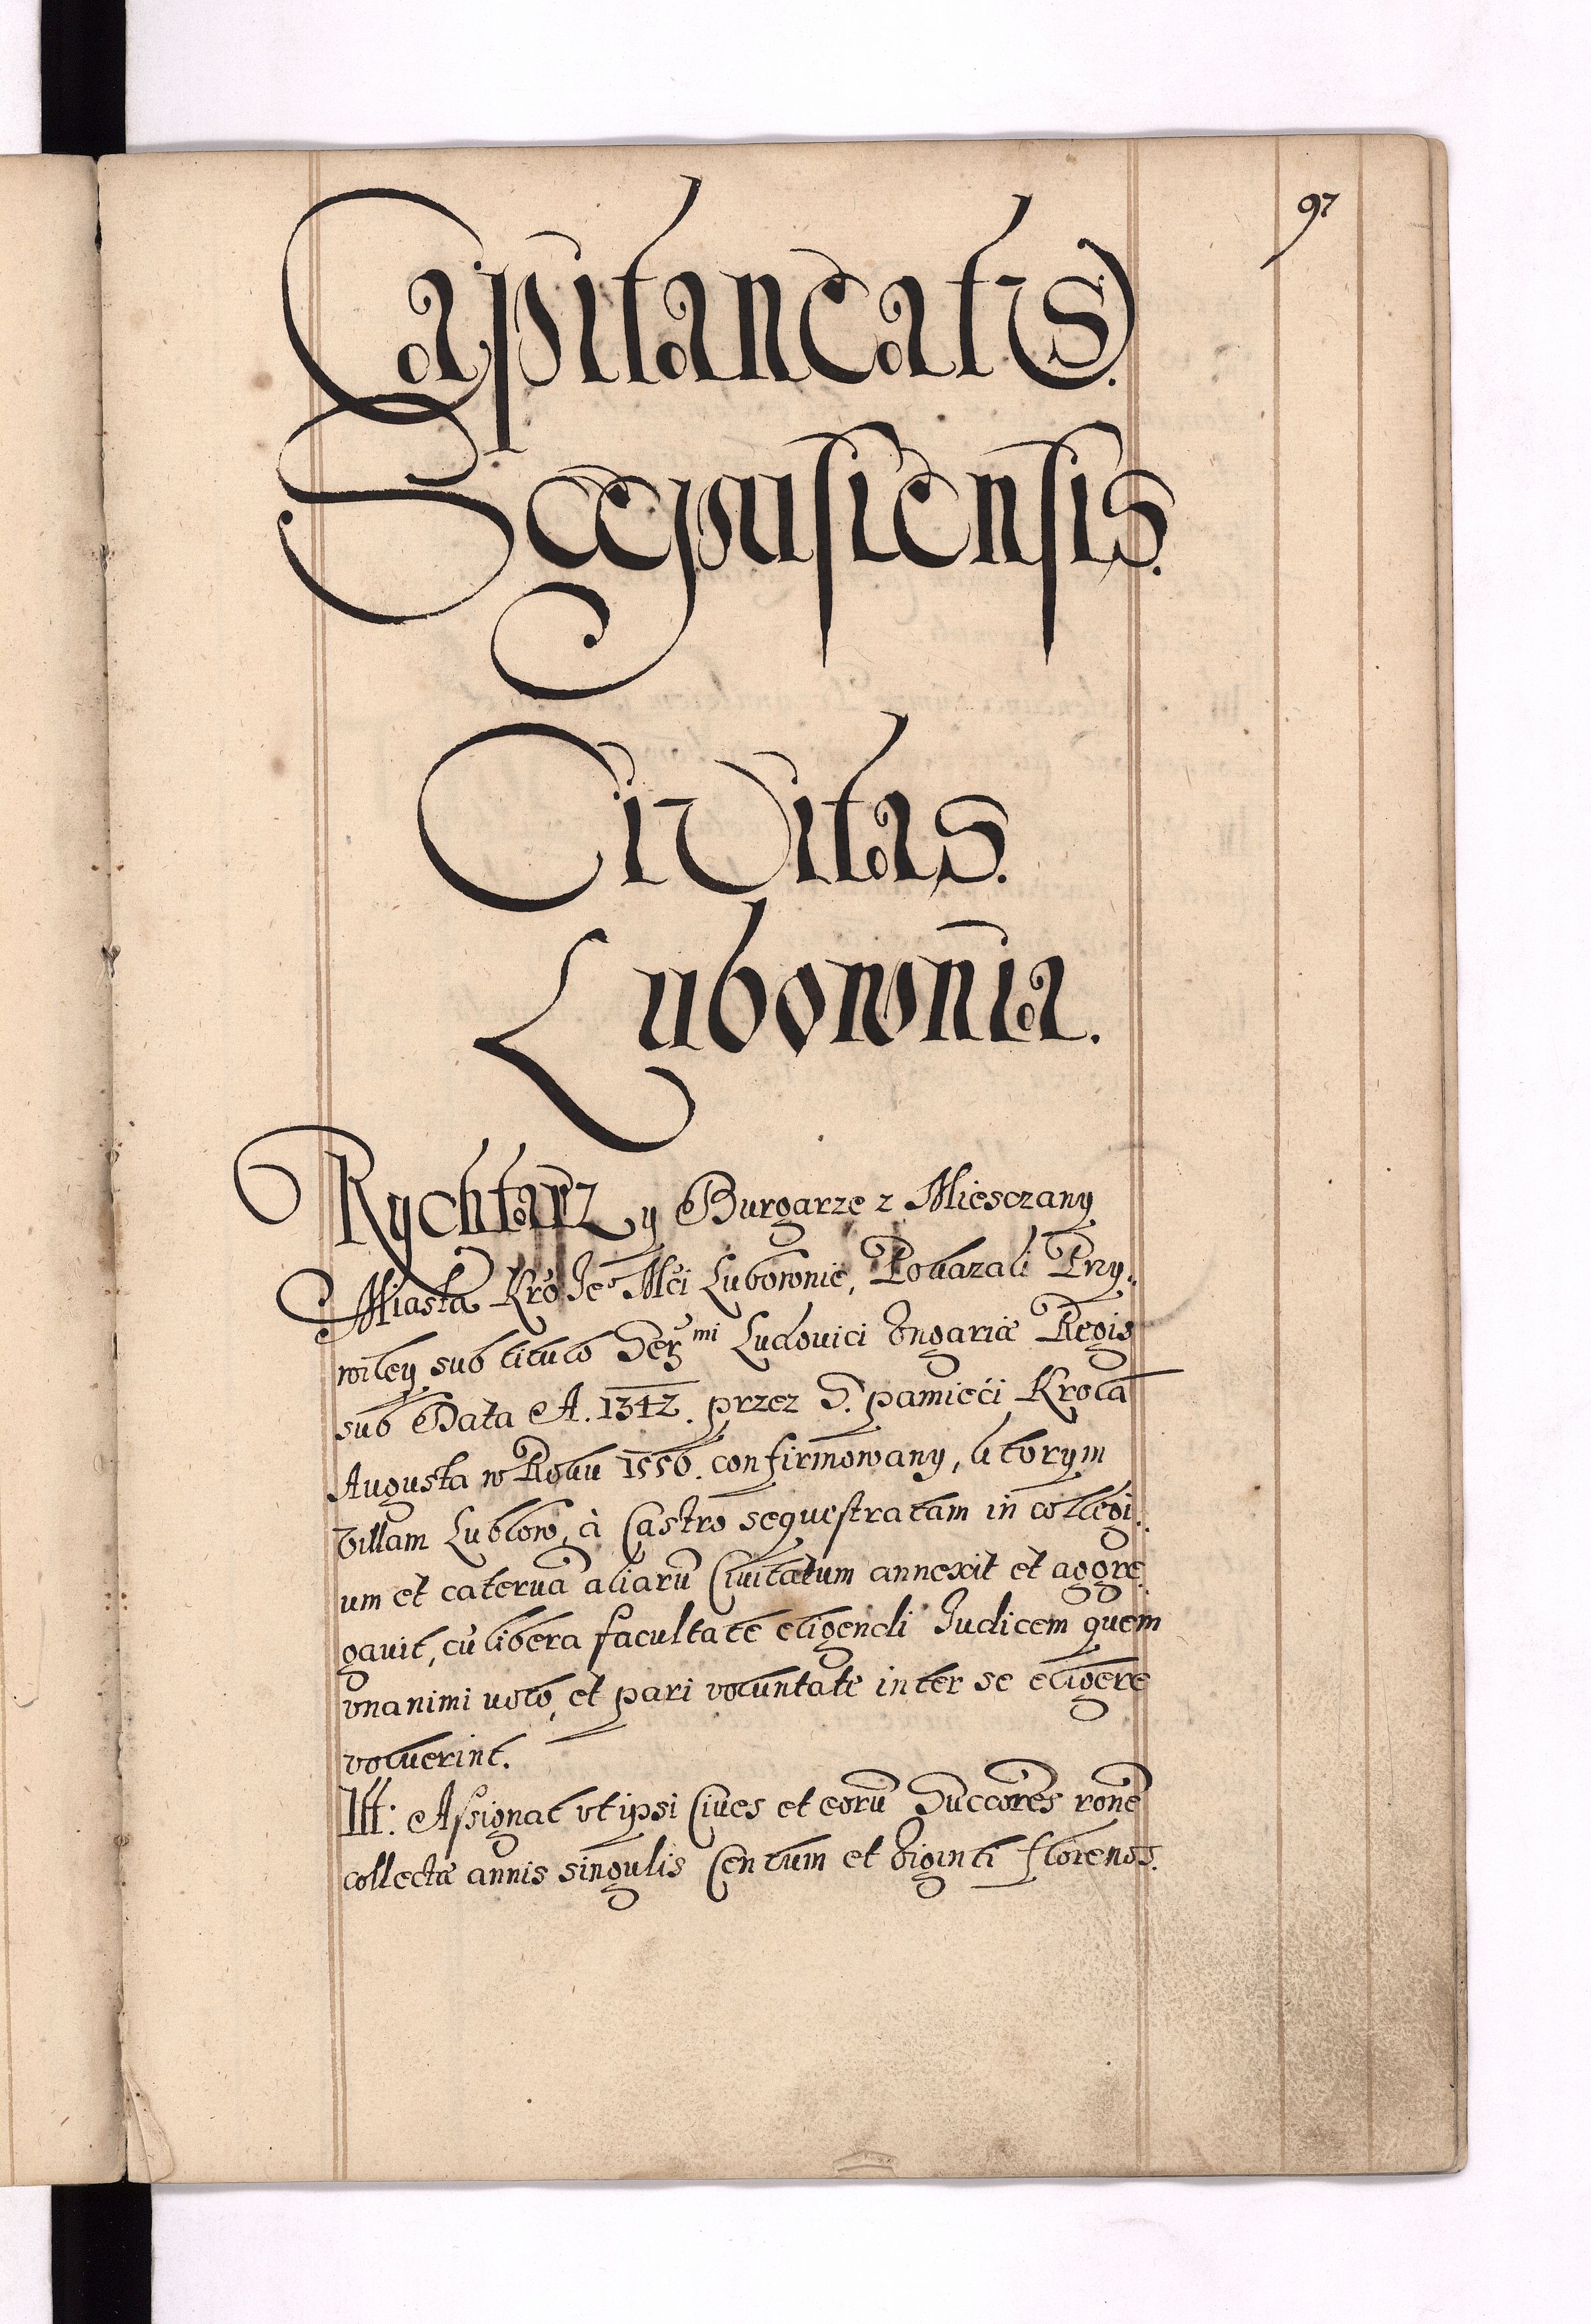 97
Capitaneatus.
Scepusiensis.
Civitas.
Lubownia.
Rychtarz y Burgarze z Miesczany
Miasta Kró Je° Mći Lubownie, Pokazali Przy„
wiley sub titulo Ser̃mi Ludovici Vngariæ Regis
sub Data A. 1342. przez S. pamięći Krola
Augusta w Roku 1556. confirmowany, ktorym
Villam Lublow, à Castro sequestratam in collegi„
um et cateruã aliarũ Ciuitatum annexit et aggre„
gauit, cũ libera facultate eligendi Judicem quem
vnanimi uoto, et pari voluntate inter se eligere
voluerint.
Itt: Assignat vt ipsi Ciues et eorũ Succores̃ ronẽ
collectæ annis singulis Centum et Viginti florenos.